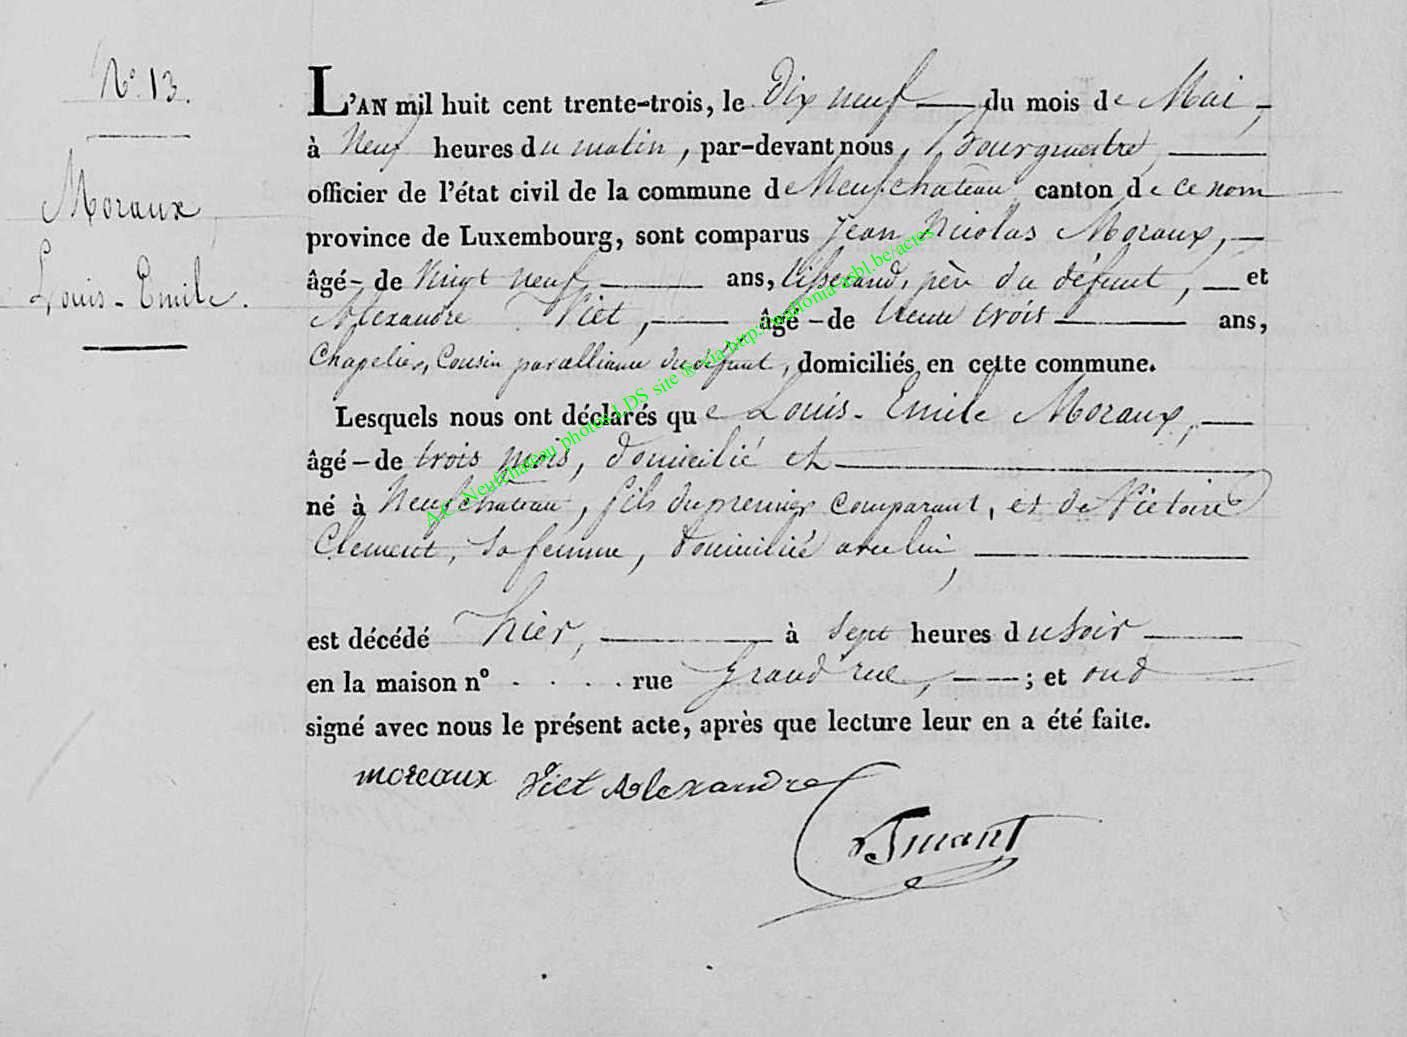 N° 13.
Moraux
Louis-Emile.
L'AN mil huit cent trente-trois, le Dix neuf du mois de Mai,
à Neuf heures du matin, par-devant nous, Bourgmestre
officier de l'état civil de la commune de Neufchateau canton de ce nom
province de Luxembourg, sont comparus Jean Nicolas Moraux,
âgé- de Vingt neuf, ans, tisserand, père du défunt, et
Alexandre Viet, âgé-de trente trois ans,
Chapelier, Cousin par alliance du défunt, domiciliés en cette commune.
Lesquels nous ont déclarés que Louis-Emile Moraux,
âgé-de trois mois, domicilié et
né à Neufchateau, fils du premier comparant, et de Victoire
Clement, sa femme, domicilié avec lui,
est décédé hier, à sept heures du soir
en la maison n° . . . . rue Grand rue, ; et ond
signé avec nous le présent acte, après que lecture leur en a été faite.
moreaux Viet Alexandre
A.C. Neufchateau photos LDS site ® via http://mahonia-asbl.be/actes